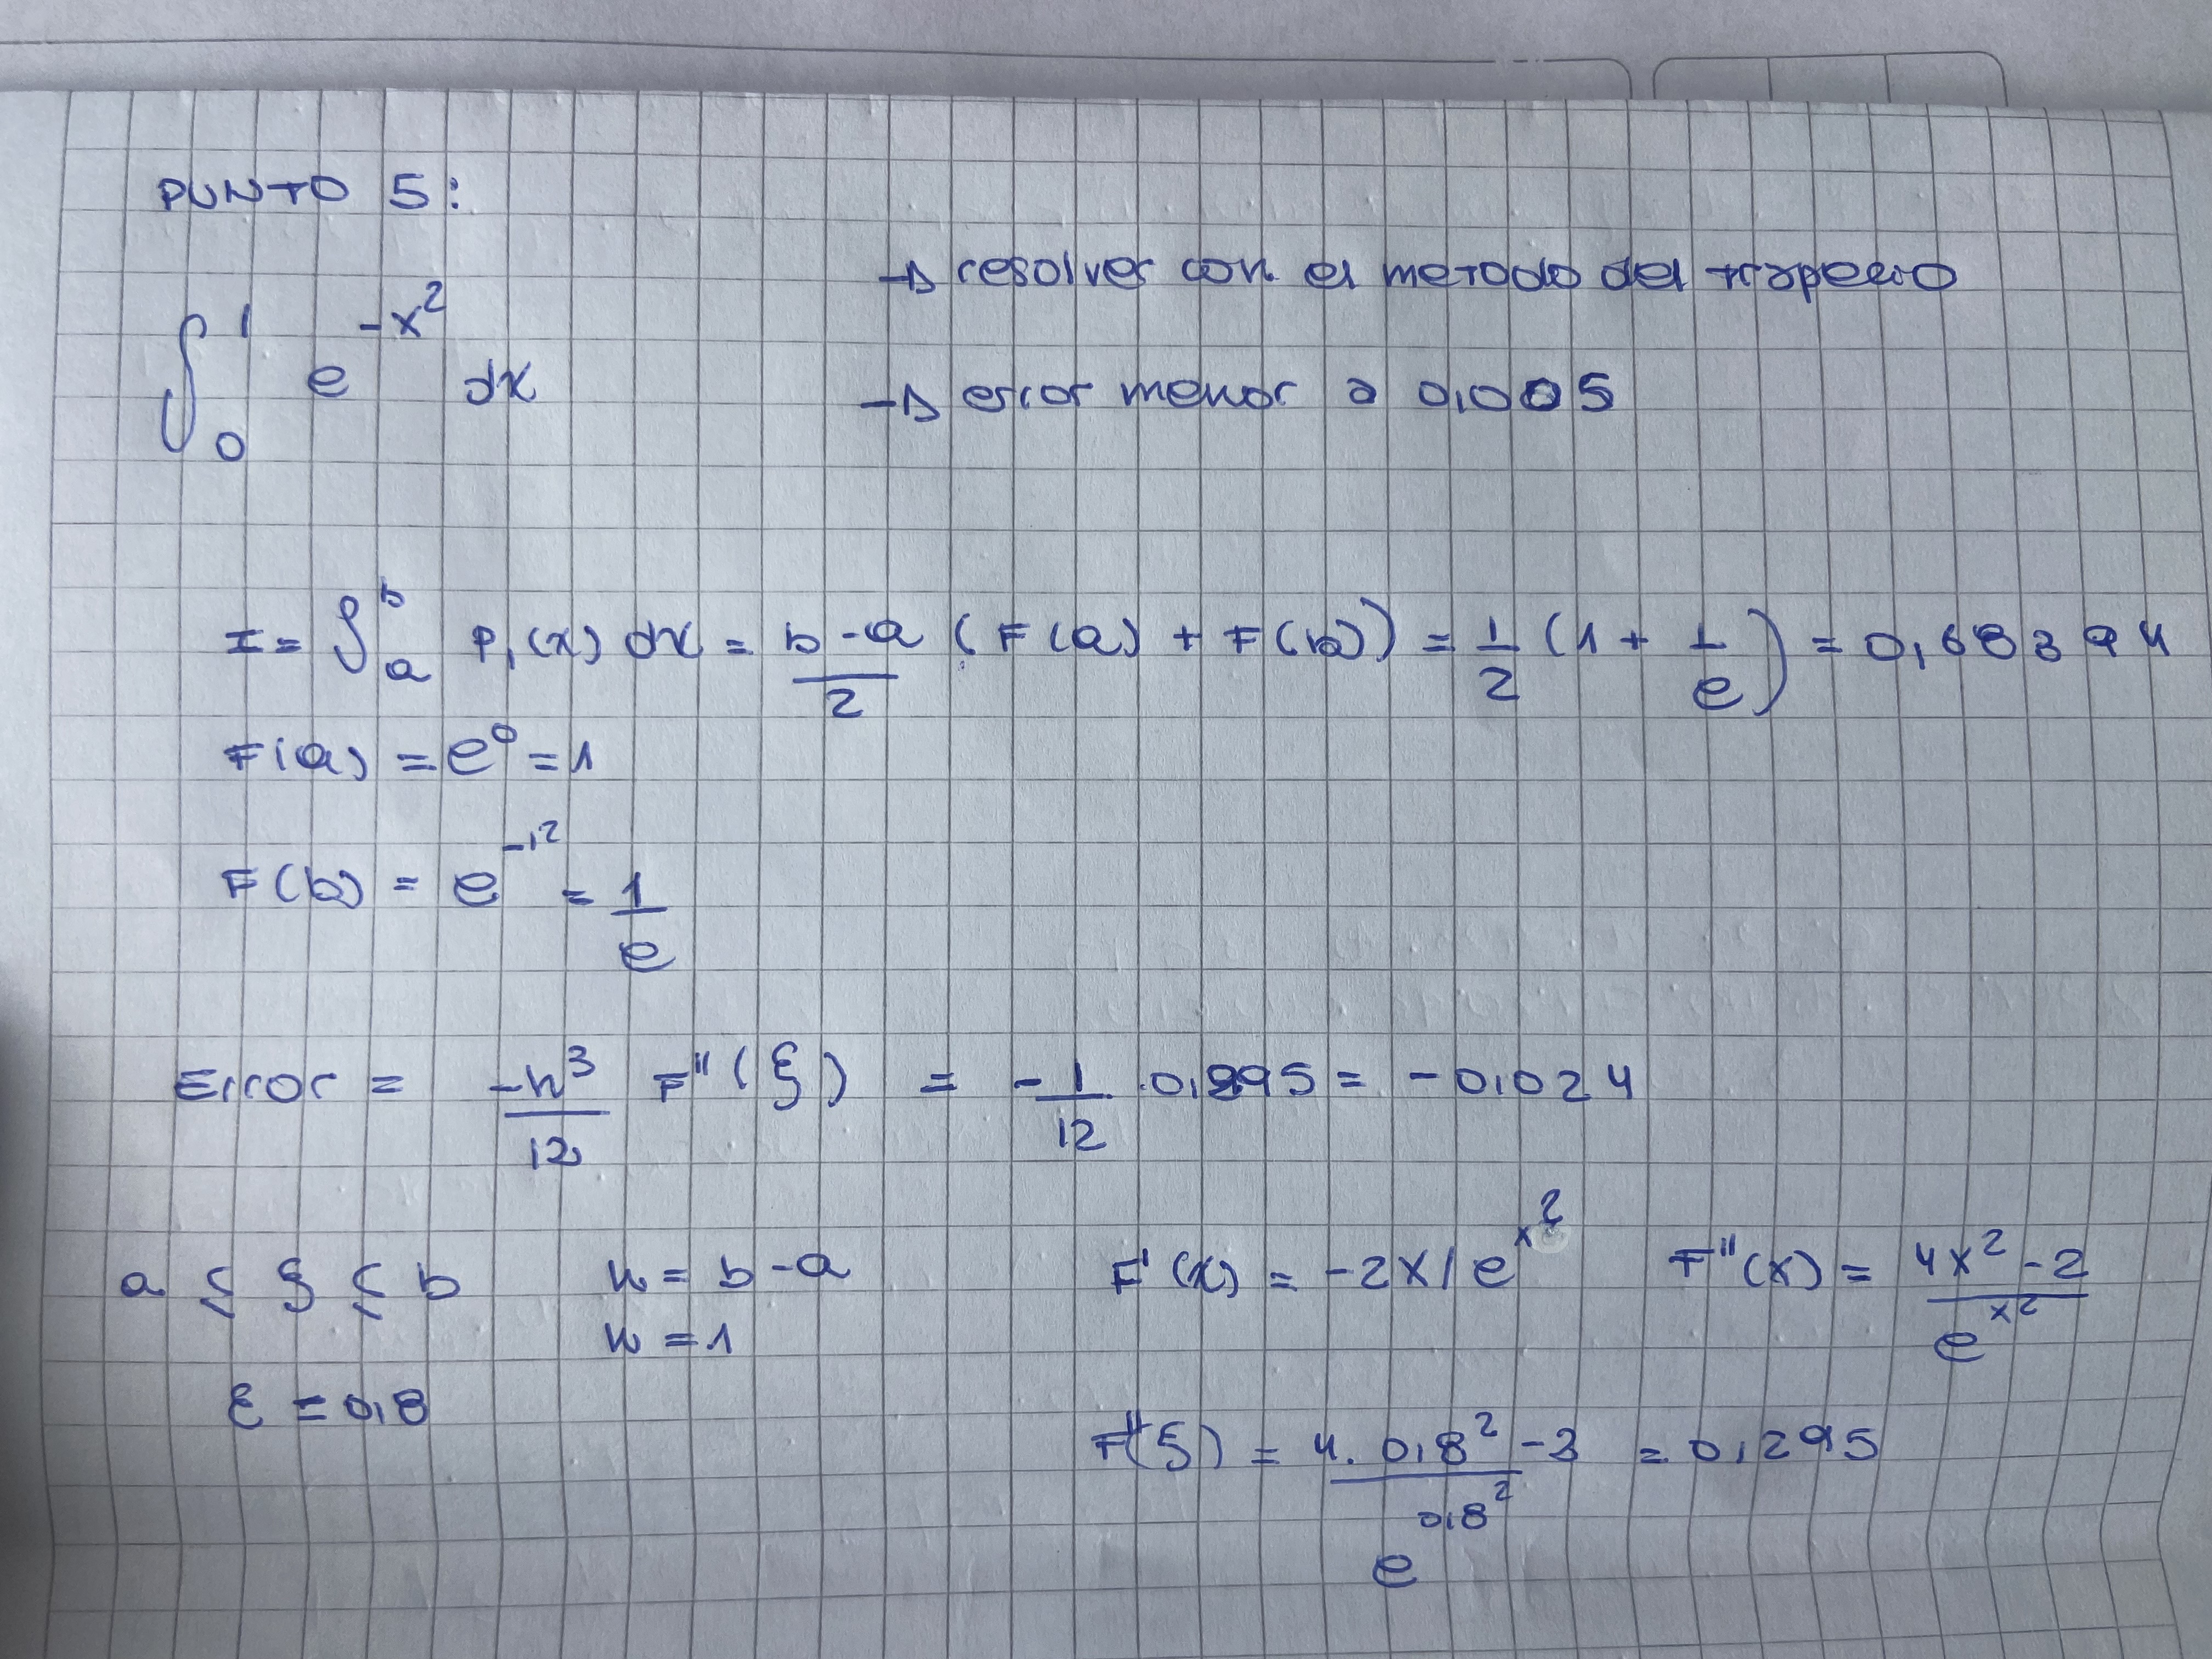 PUNTO 5:
∫₀¹ e^-x² dx
→ resolver con el metodo del trapecio
→ error menor a 0,005
I = ∫ₐᵇ P₁(x) dx = b-a/2 (F(a) + F(b)) = 1/2 (1 + 1/e) = 0,68394
F(a) = e⁰ = 1
F(b) = e^-1² = 1/e
Error = -h³/12 F''(ξ) = -1/12 . 0,295 = -0,024
a ≤ ξ ≤ b h = b-a F'(x) = -2x/e^x² F''(x) = 4x²-2/e^x²
h = 1
ξ = 0,8 F''(ξ) = 4.0,8²-2/e^0,8² = 0,295